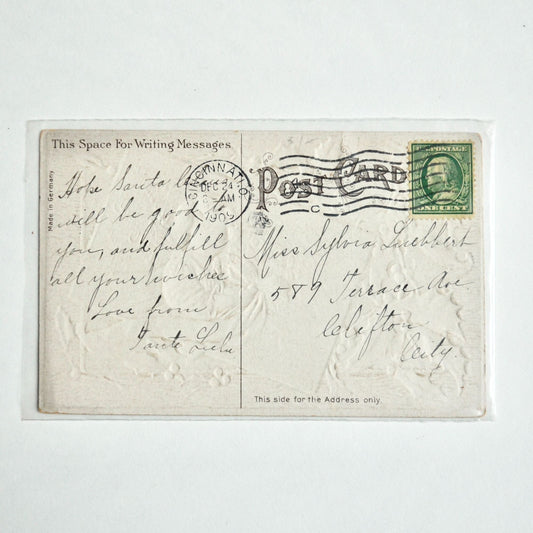 This Space For Writing Messages
Made in Germany
Hope Santa
will be good
you, and fulfill
all your wishes
Love from
Tante Lulu
CINCINNATI, O.
DEC 24
AM
1909
POST CARD
C
U.S. POSTAGE
ONE CENT
Miss Sylvia Luebbert
589 Terrace Ave
Clifton
City.
This side for the Address only.